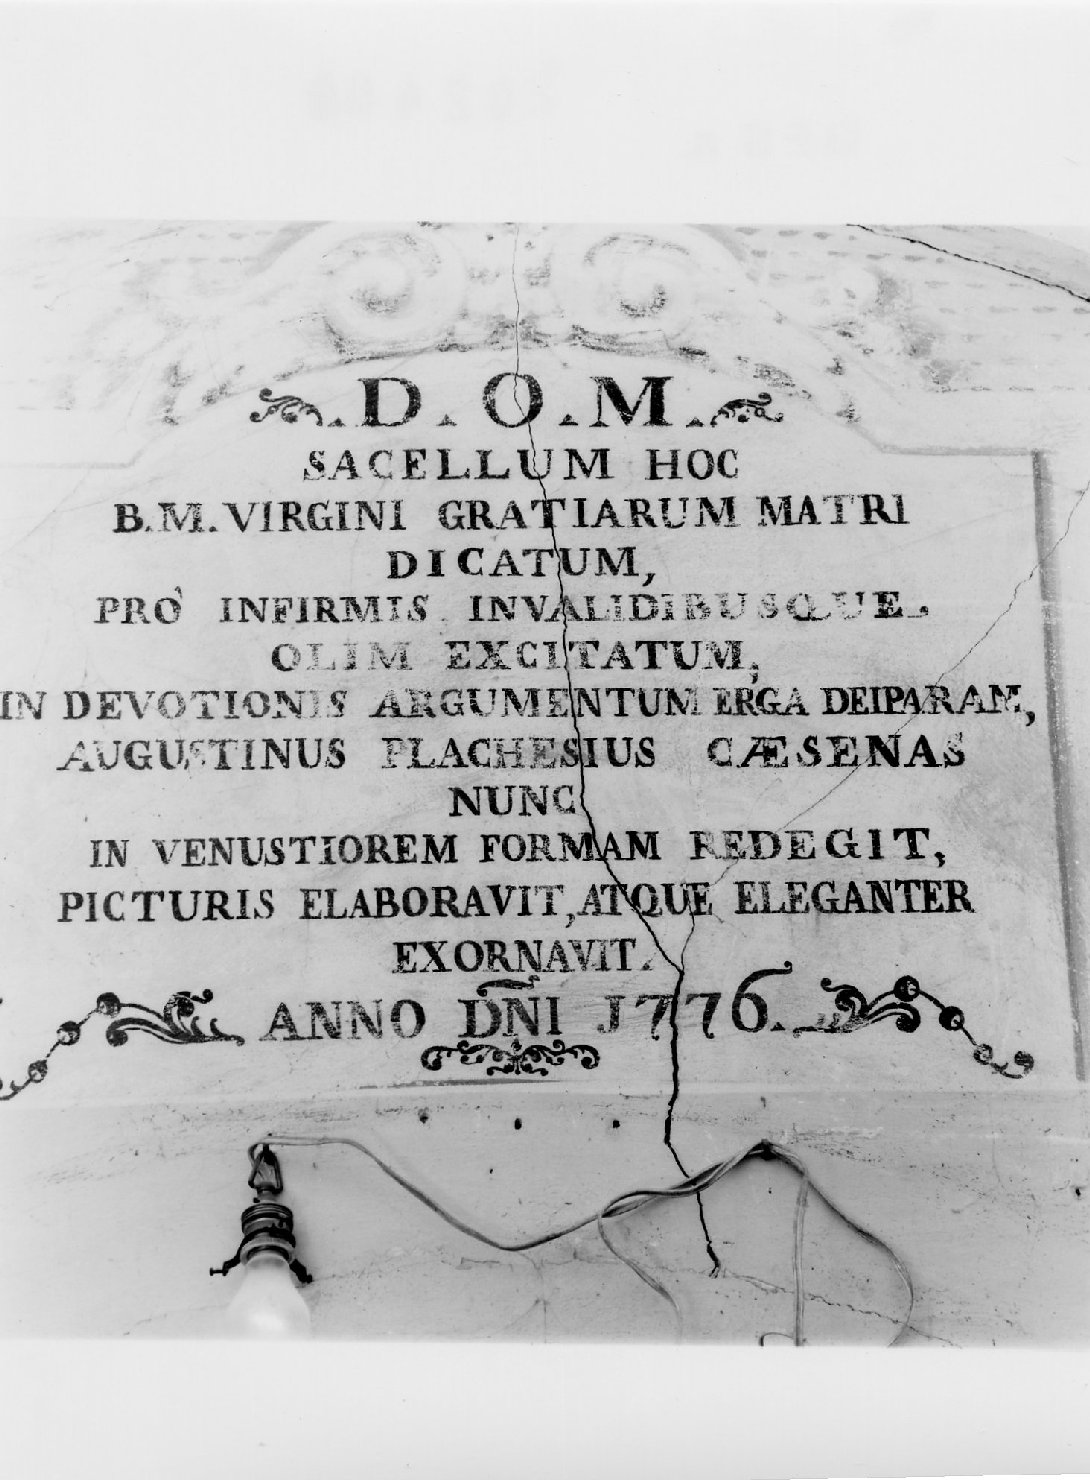 .D.O.M.
SACELLUM HOC
B.M. VIRGINI GRATIARUM MATRI
DICATUM,
PRO' INFIRMIS INVALIDIBUSQUE
OLIM EXCITATUM,
IN DEVOTIONIS ARGUMENTUM ERGA DEIPARAM,
AUGUSTINUS PLACHESIUS CÆSENAS
NUNC
IN VENUSTIOREM FORMAM REDEGIT,
PICTURIS ELABORAVIT, ATQUE ELEGANTER
EXORNAVIT.
ANNO DÑI 1776.